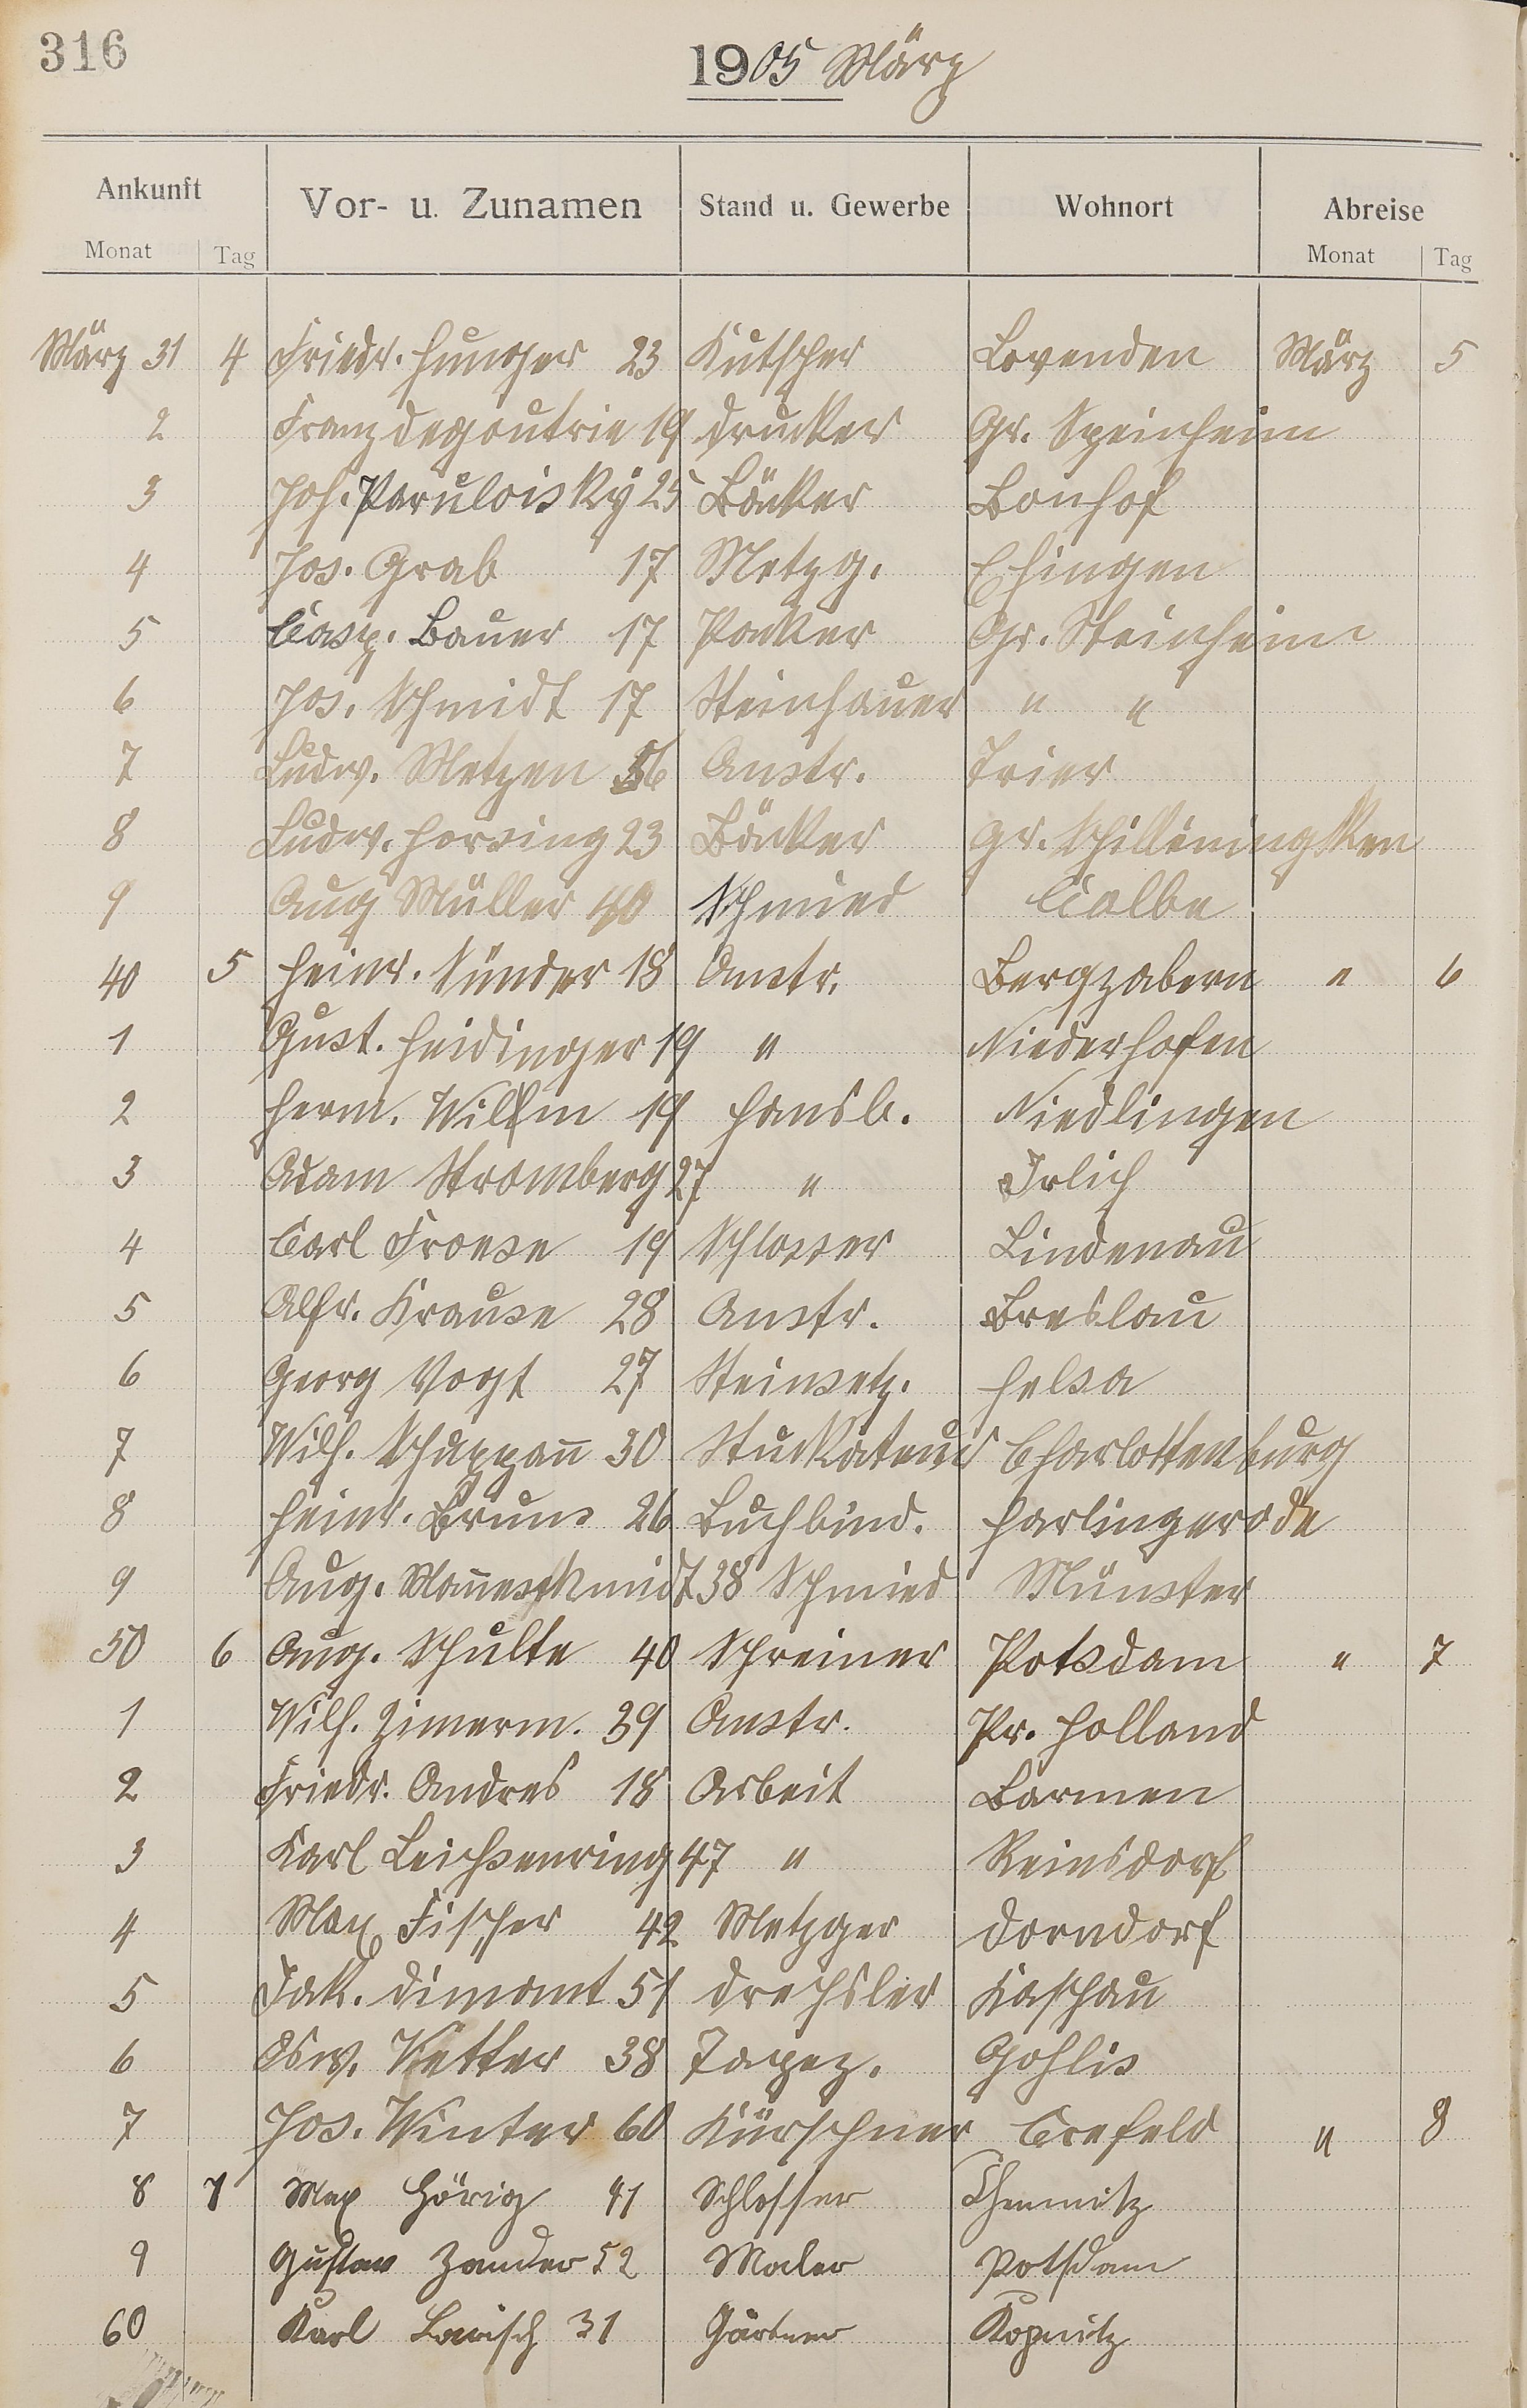 316
1905 März
Ankunft Vor- u. Zunamen Stand u. Gewerbe Wohnort Abreise
Monat Tag Monat Tag
März 31 4 Friedr. Hunger 23 Kutscher Bovenden März 5
2 Franz Degoutrie 19 Drucker Gr. Steinheim
3 Joh. 25 Bäcker Bonhof
4 Jos. Grab 17 Metzg. Ehingen
5 Casp. Bauer 17 Packer Gr. Steinheim
6 Jos. Schmidt 17 Steinhauer " "
7 Ludw. Metzen 56 Anstr. Trier
8 Ludw. 23 Bäcker Gr. Schilleningken
9 Aug Müller 40 Schmied Calbe
40 5 Heinr. Sünder 18 Anstr. Bergzabern " 6
1 Gust. Heidinger 19 " Niederhofen
2 Herm. Wilhm 19 Hausb. Niedlingen
3 Adam Stromberg 27 " Irlich
4 Carl Froese 19 Schlosser Lindenau
5 Alfr. Krause 28 Anstr. Breslau
6 Georg Vogt 27 Steinsetz. Helsa
7 Wilh. Schuppan̄ 30 Stuckateur Charlottenburg
8 Heinr. Bruns 26 Buchbind. Harlingerode
9 Aug. 38 Schmied Münster
50 6 Aug. Schulte 40 Schreiner Potsdam " 7
1 Wilh. Zimerm. 39 Anstr. Pr. Holland
2 Friedr. Andres 18 Arbeit Barmen
3 Karl Leichsenring 47 " Reinsdorf
4 Max Fischer 42 Metzger Dorndorf
5 Jak. Dimant 51 Drechsler Kaschau
6 Osw. Ketter 38 Tapez. Gohlis
7 Jos. Winter 60 Kürschner Crefeld " 8
8 7 Max Hörig 41 Schlosser Chemnitz
9 Gustav Zander 52 Maler Potsdam
60 Karl 31 Gärtner Kopnitz